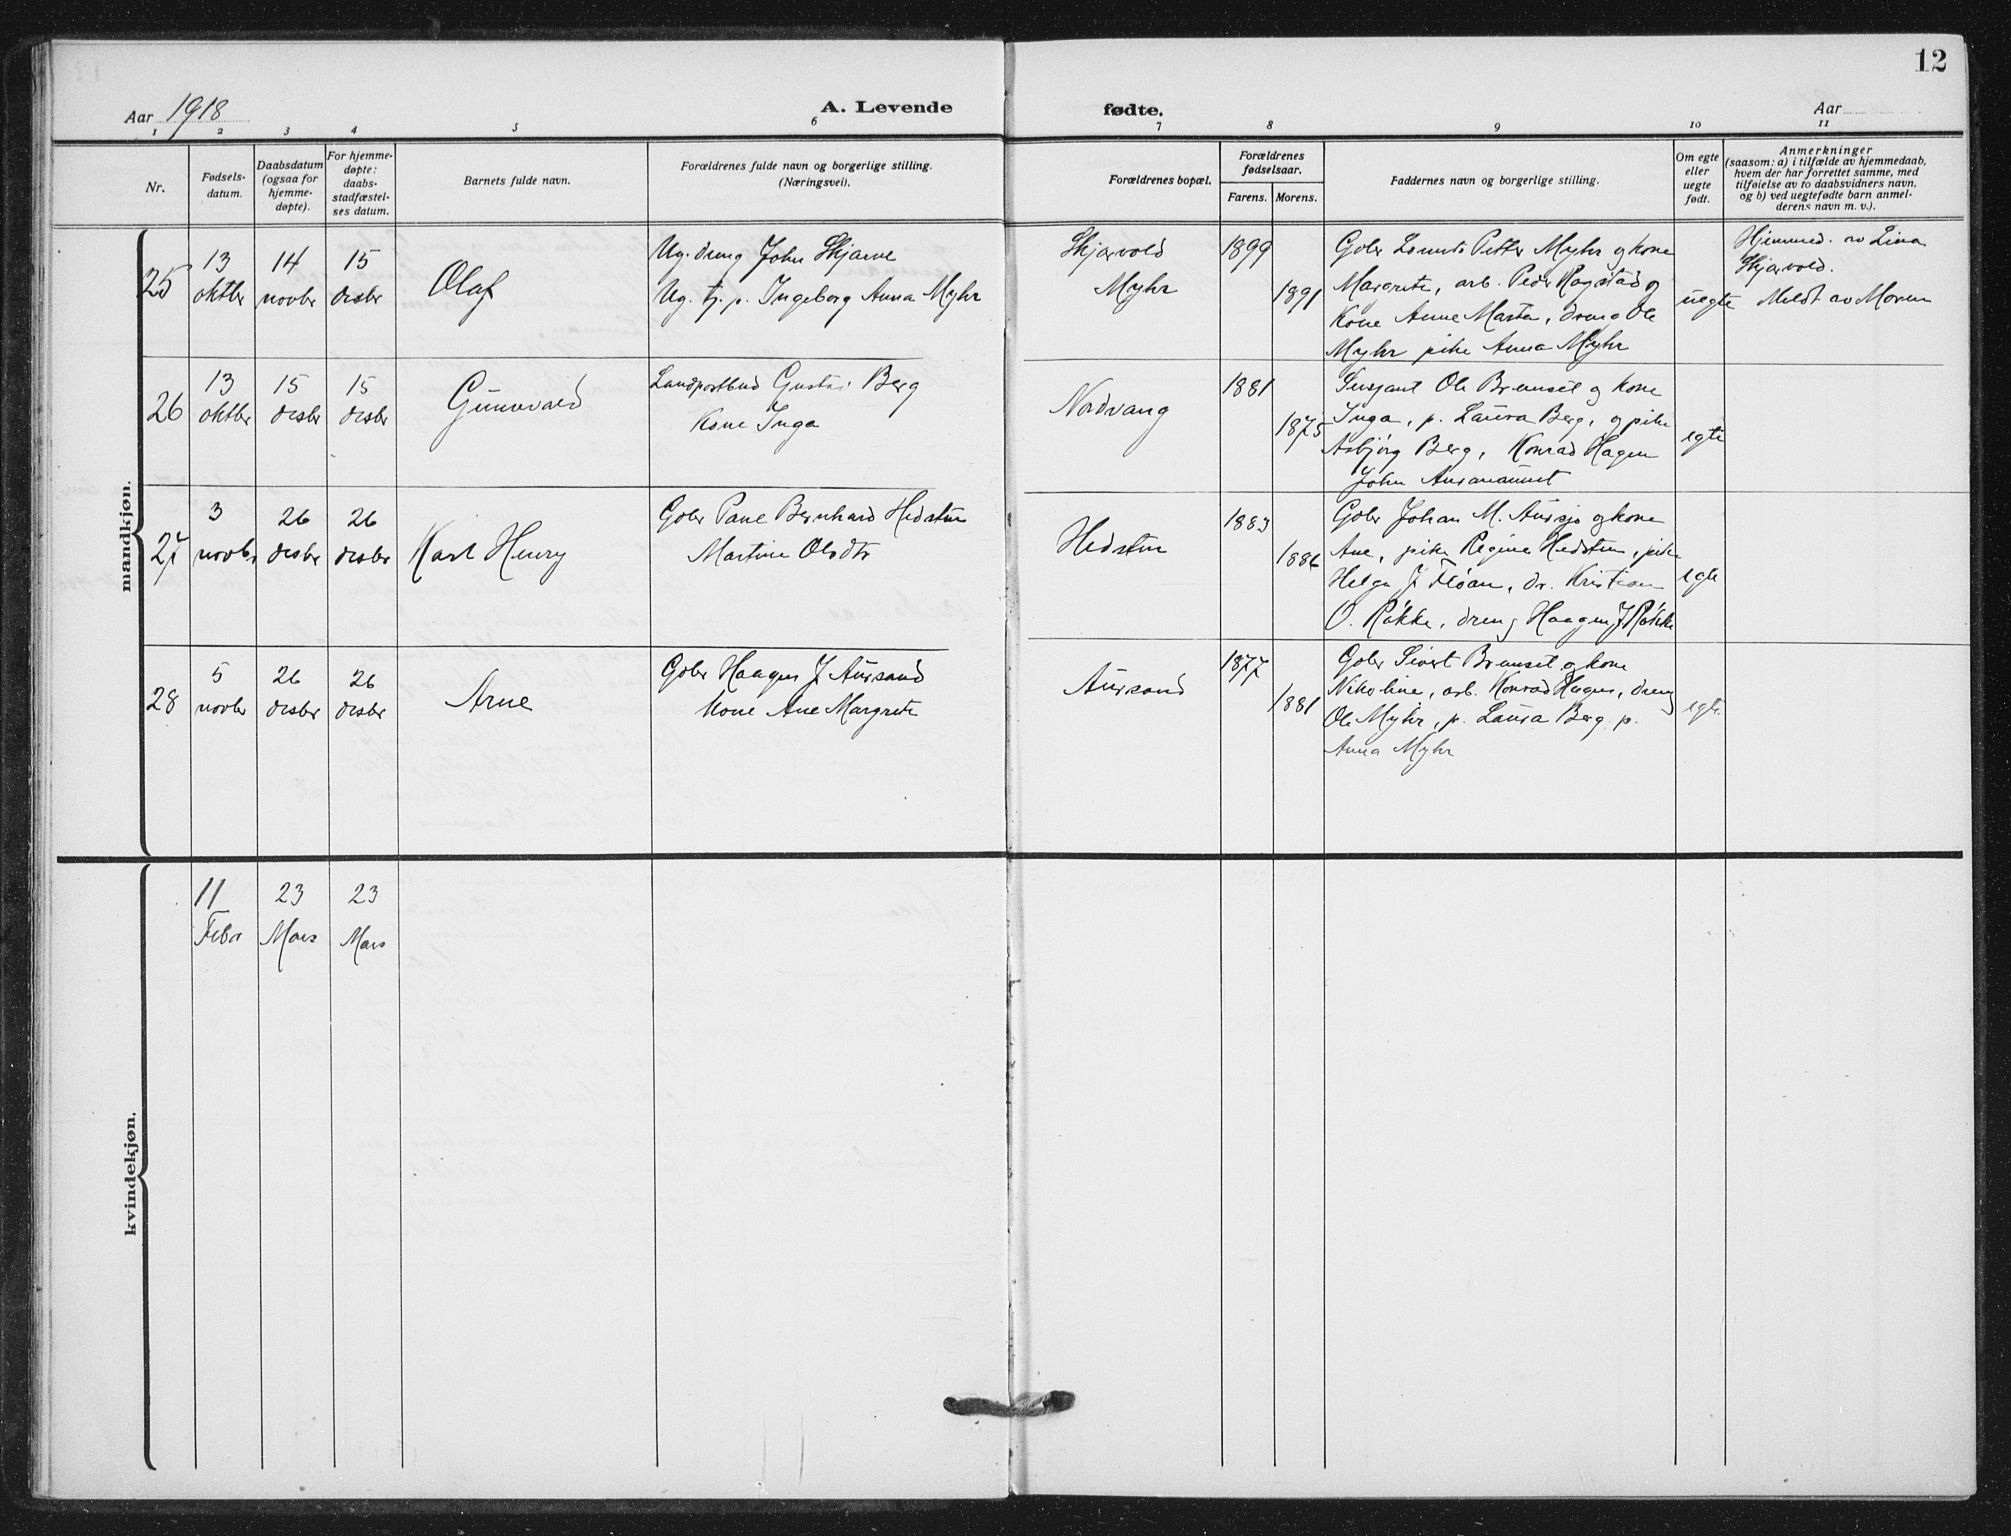 12
Aar 1918
A. Levende
fødte.
Aar
1 2 3 4 5 6 7 8 9 10 11
Nr.
Fødsels-
datum.
Daabsdatum
(ogsaa for
hjemme-
døpte).
For hjemme-
døpte:
daabs-
stadfæstel-
ses datum.
Barnets fulde navn.
Forældrenes fulde navn og borgerlige stilling.
(Næringsvei).
Forældrenes bopæl.
Forældrenes
fødselsaar.
Farens. Morens.
Faddernes navn og borgerlige stilling.
Om egte
eller
uegte
født.
Anmerkninger
(saasom: a) i tilfælde av hjemmedaab,
hvem der har forrettet samme, med
tilføielse av to daabsvidners navn,
og b) ved uegtefødte barn anmel-
derens navn m. v.).
mandkjøn.
25
13
oktbr
14
novbr
15
desbr
Olaf
Ug. dreng John Skjærve
Ug. tj. p. Ingeborg Anna Myhr
Skjærvold
Myhr
1899
1891
Gbr Petter Myhr og kone
Margrete, arb. Peder Rogstad og
Kone Anne Marta, dreng Ole
Myhr pike Anna Myhr
uegte
Hjemmed. av Lina
Skjærvold.
Meldt av Moren
26
13
oktbr
15
desbr
15
desbr
Gunnvald
Landpostbud Gustav Berg
Kone Inga
Nordvang
1881
1875
Sersjant Ole Bremset og kone
Inga, p. Laura Berg, og pike
Asbjørg Berg, Konrad Hagen
John
egte
27
3
novbr
26
desbr
26
desbr
Karl Henry
Gbr Pane Bernhard Hedsten
Martine Olsdtr
Hedsten
1883
1886
Gbr Johan M. Aursjø og kone
Ane, pike Regine Hedsten, pike
Helga J Fløan, dr. Kristian
O. Røkke, dreng Haagen J Røkke
egte
28
5
novbr
26
desbr
26
desbr
Arne
Gbr Haagen J Aursand
Kone Ane Margrete
Aursand
1877
1881
Gbr Sivert Bremset og kone
Nikoline, arb. Konrad Hagen, dreng
Ole Myhr, p. Laura Berg p.
Anna Myhr
egte
kvindekjøn.
11
Febr
23
Mars
23
Mars